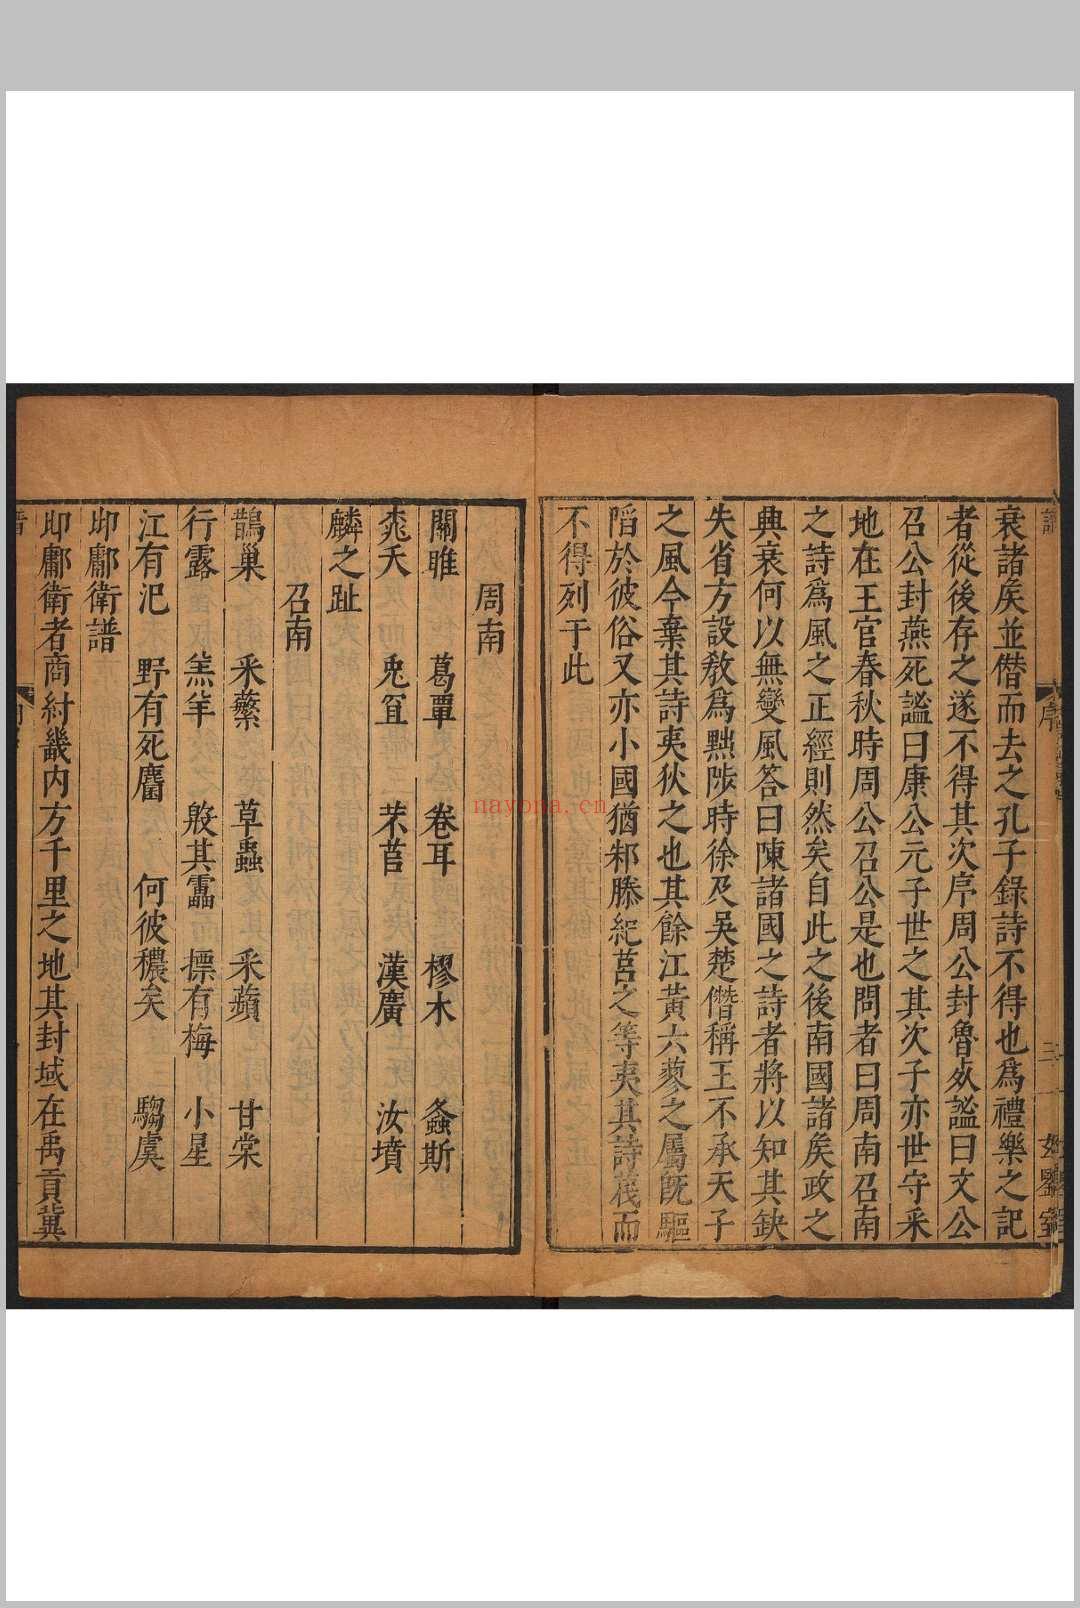 衰諸矦並僣而去之孔子錄詩不得也爲禮樂之記
者從後存之遂不得其次序周公封魯死謚曰文公
召公封燕死謚曰康公元子世之其次子亦世守采
地在王官春秋時周公召公是也問者曰周南召南
之詩爲風之正經則然矣自此之後南國諸矦政之
興衰何以無變風答曰陳諸國之詩者將以知其缺
失省方設敎爲黜陟時徐及吳楚僭稱王不承天子
之風今棄其詩夷狄之也其餘江黃六蓼之屬旣驅
陷於彼俗又亦小國猶邾滕紀莒之等夷其詩蔑而
不得列于此
周南
關雎 葛覃 卷耳 樛木 螽斯
桃夭 兎罝 芣苢 漢廣 汝墳
麟之趾
召南
鵲巢 采蘩 草蟲 采蘋 甘棠
行露 羔羊 殷其靁 摽有梅 小星
江有汜 野有死麕 何彼穠矣 騶虞
邶鄘衛譜
邶鄘衛者商紂畿内方千里之地其封域在禹貢冀
nayona.cn